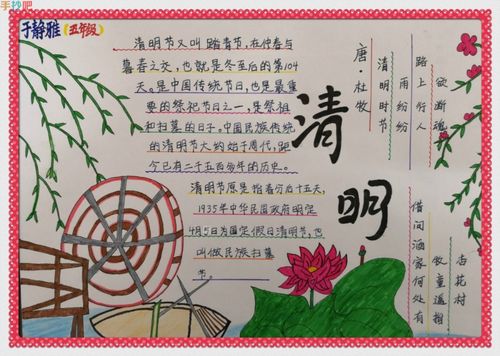 手抄吧
于静雅（五年级）
清明节又叫踏青节，在仲春与
暮春之交，也就是冬至后的第104
天。是中国传统节日，也是最重
要的祭祀节日之一，是祭祖
和扫墓的日子。中国民族传统
的清明节大约始于周代，距
今已有二千五百多年的历史。
清明节原是指春分后十五天，
1935年中华民国政府明定
4月5日为国定假日清明节，也
叫做民族扫墓
节。
清明
唐·杜牧
清明时节
雨纷纷
路上行人
欲断魂
借问酒家何处有
牧童遥指
杏花村